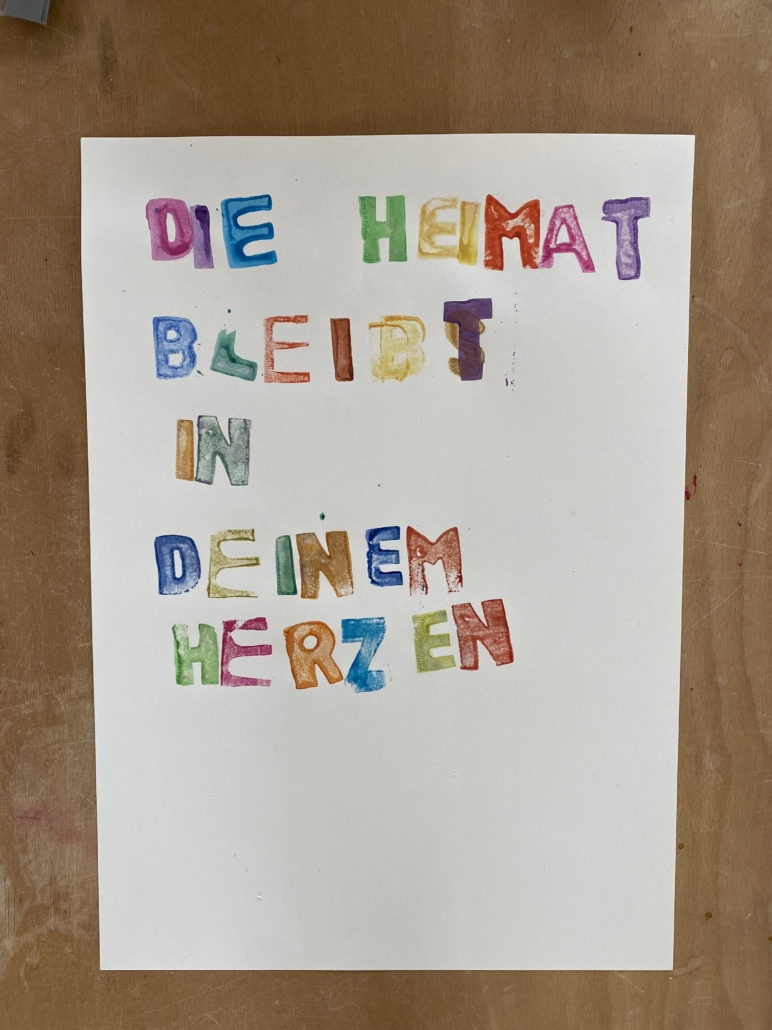 DIE HEIMAT
BLEIBT
IN
DEINEM
HERZEN